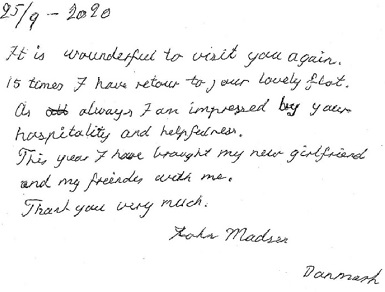 25/9 - 2020
It is wounderful to visit you again.
15 times I have retour to your lovely flat.
As always I am impressed by your
hospitality and helpfedness.
This year I have braught my new girlfriend
and my freindes with me.
Thank you very much.
John Madsen
Danmark